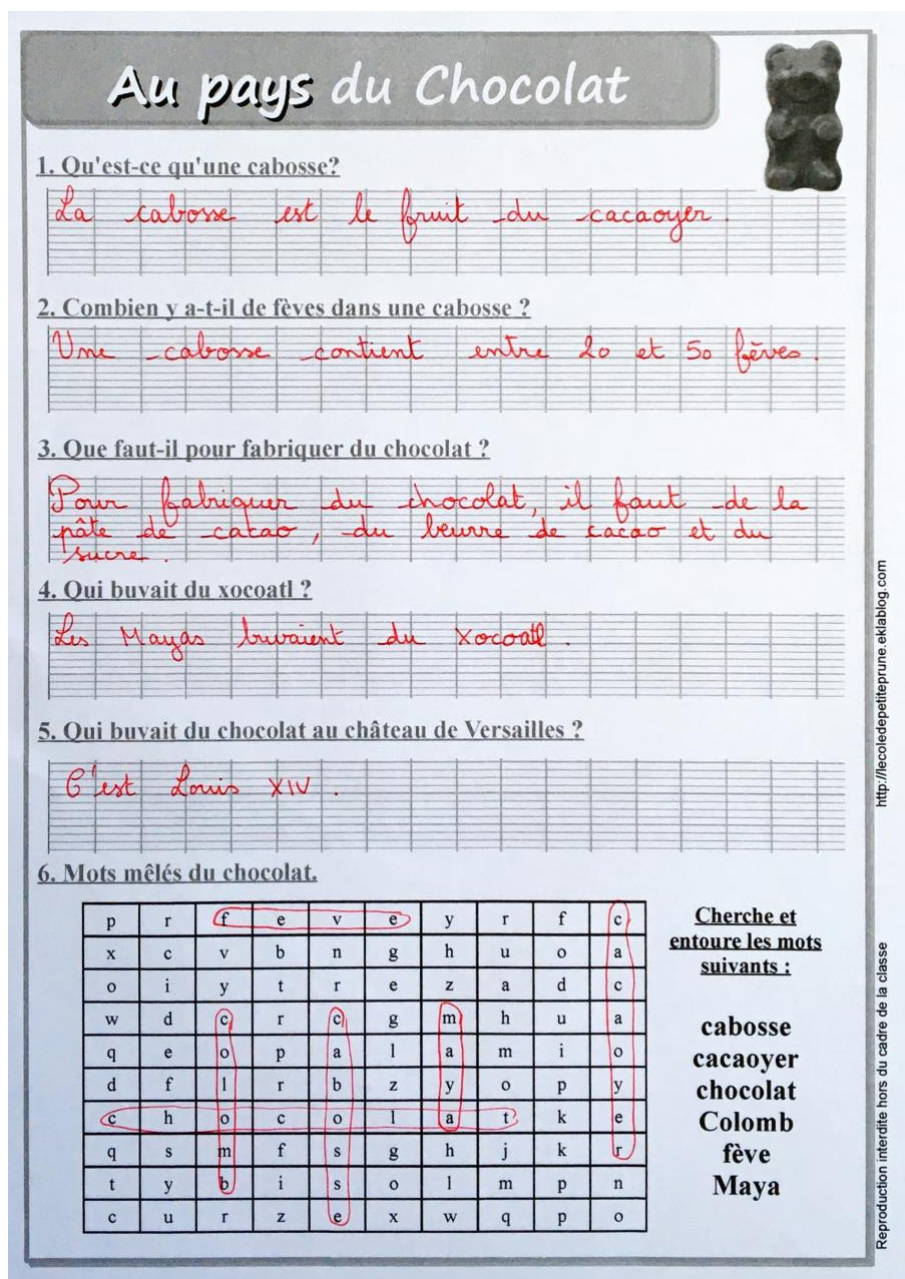 Au pays du Chocolat
1. Qu'est-ce qu'une cabosse?
La cabosse est le fruit du cacaoyer.
2. Combien y a-t-il de fèves dans une cabosse ?
Une cabosse contient entre 20 et 50 fèves.
3. Que faut-il pour fabriquer du chocolat ?
Pour fabriquer du chocolat, il faut de la
pâte de cacao, du beurre de cacao et du
sucre.
4. Qui buvait du xocoatl ?
Les Mayas buvaient du xocoatl.
5. Qui buvait du chocolat au château de Versailles ?
C'est Louis XIV.
6. Mots mêlés du chocolat.
p r f e v e y r f c
x c v b n g h u o a
o i y t r e z a d c
w d c r c g m h u a
q e o p a l a m i o
d f l r b z y o p y
c h o c o l a t k e
q s m f s g h j k r
t y b i s o l m p n
c u r z e x w q p o
Cherche et
entoure les mots
suivants :
cabosse
cacaoyer
chocolat
Colomb
fève
Maya
http://lecoledepetiteprune.eklablog.com
Reproduction interdite hors du cadre de la classe